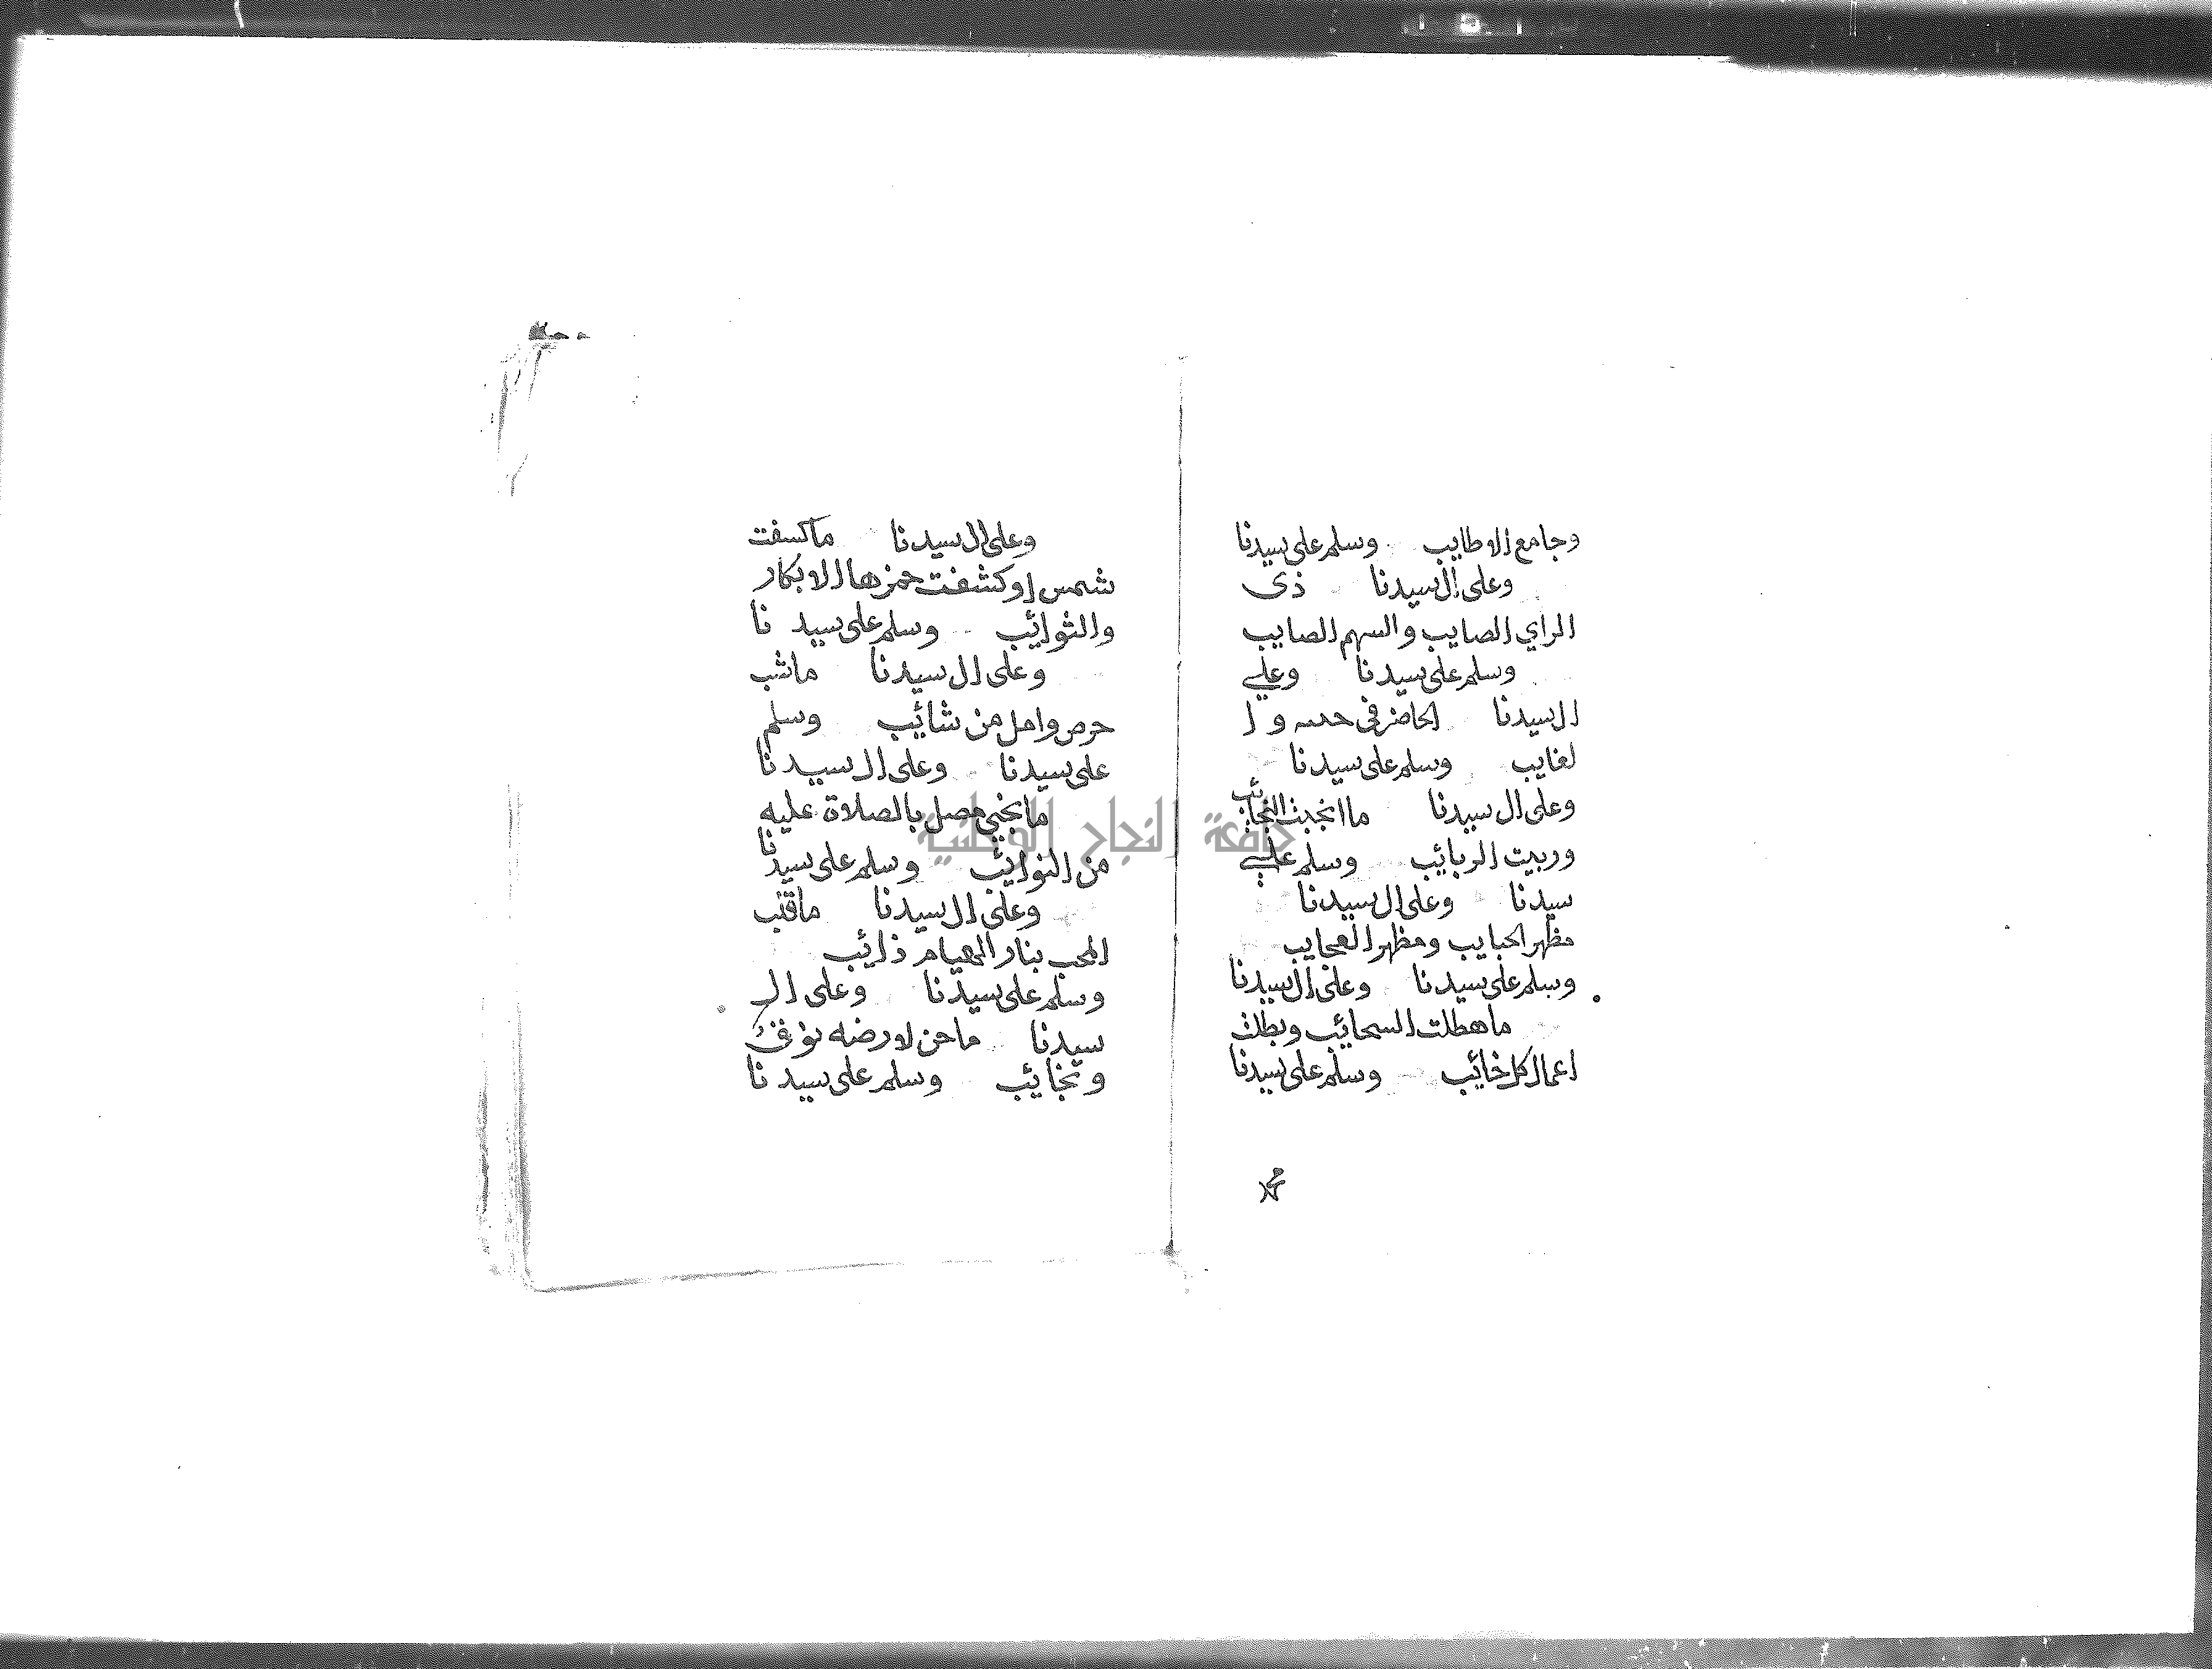 وجامع الاطايب وسلم على سيدنا
وعلى ال سيدنا ذى
الراي الصايب والسهم الصايب
وسلم على سيدنا وعلي
ال سيدنا الحاضر فى وا
لغايب وسلم على سيدنا
وعلى ال سيدنا ما انجبت النجائب
وربيت الربائب وسلم علي
سيدنا وعلى ال سيدنا
مظهر الحبايب ومظهر العجايب
وسلم على سيدنا وعلى ال سيدنا
ما هطلت السحائب وبطلت
اعمال كل خائب وسلم على سيدنا
محمد
وعلى ال سيدنا ما كسفت
شمس او كشفت الابكار
والثوائب وسلم على سيد نا
وعلى ال سيدنا ما شب
حرص وامل من شائب وسلم
على سيدنا وعلى ال سيدنا
ما نجى مصل بالصلاة عليه
من النوائب وسلم على سيدنا
وعلى ال سيدنا ما قلب
المحب بنار الهيام ذائب
وسلم على سيدنا وعلى ال
سيدنا ما حن لارضه نوق
ونجائب وسلم على سيد نا
جامعة النجاح الوطنية